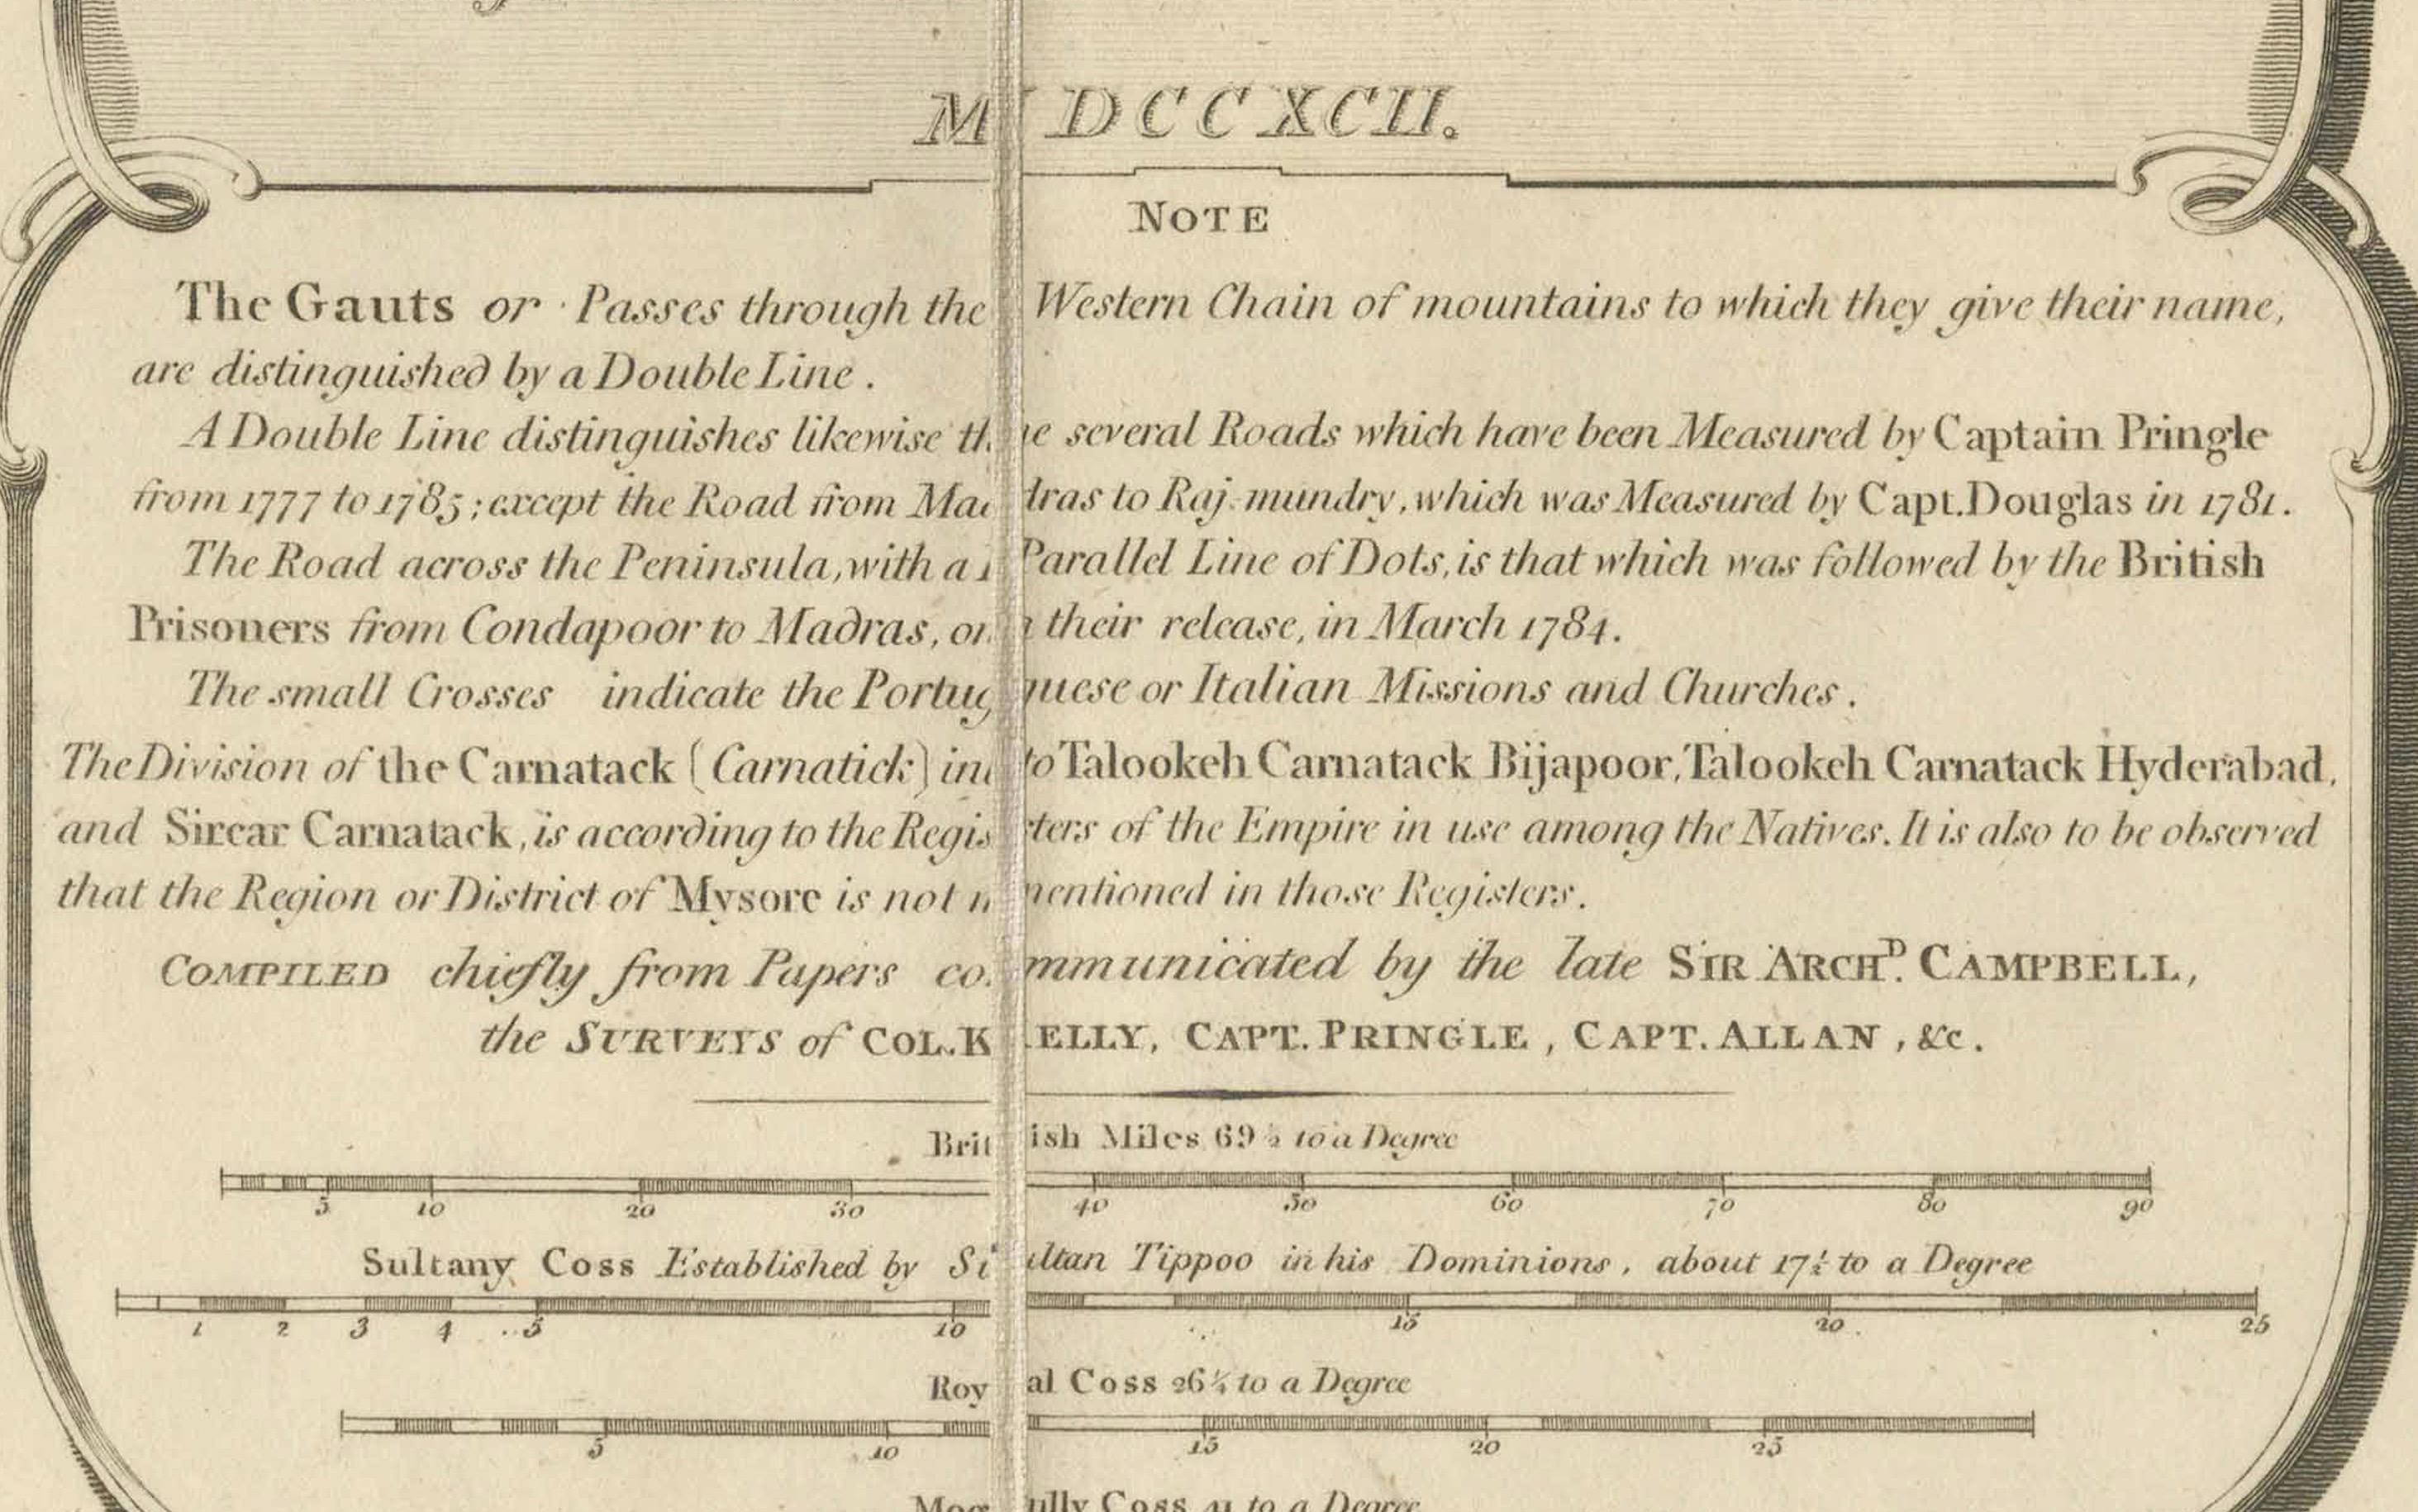 MDCCXCII.
NOTE
The Gauts or Passes through the Western Chain of mountains to which they give their name,
are distinguished by a Double Line.
A Double Line distinguishes likewise the several Roads which have been Measured by Captain Pringle
from 1777 to 1785; except the Road from Madras to Raj-mundry, which was Measured by Capt. Douglas in 1781.
The Road across the Peninsula, with a Parallel Line of Dots, is that which was followed by the British
Prisoners from Condapoor to Madras, on their release, in March 1784.
The small Crosses indicate the Portuguese or Italian Missions and Churches.
The Division of the Carnatack (Carnatick) into Talookeh Carnatack Bijapoor, Talookeh Carnatack Hyderabad,
and Sircar Carnatack, is according to the Registers of the Empire in use among the Natives. It is also to be observed
that the Region or District of Mysore is not mentioned in those Registers.
COMPILED chiefly from Papers communicated by the late SIR ARCHD. CAMPBELL,
the SURVEYS of COL. KELLY, CAPT. PRINGLE, CAPT. ALLAN, &c.
British Miles 69½ to a Degree
5 10 20 30 40 50 60 70 80 90
Sultany Coss Established by Sultan Tippoo in his Dominions, about 17½ to a Degree
1 2 3 4 5 10 15 20 25
Royal Coss 26¼ to a Degree
5 10 15 20 25
Coss to a Degree